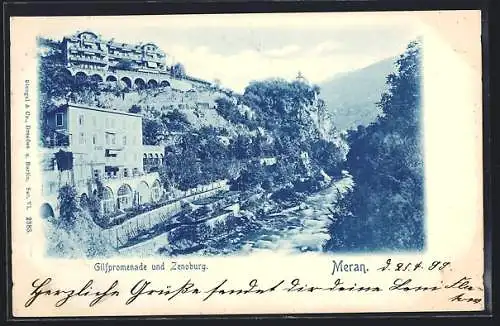 Stengel & Co., Dresden u. Berlin. Fol. VI. 2983.
Gilfpromenade und Zenoburg.
Meran. d. 21.4.99.
Herzliche Grüße sendet dir deine Leni